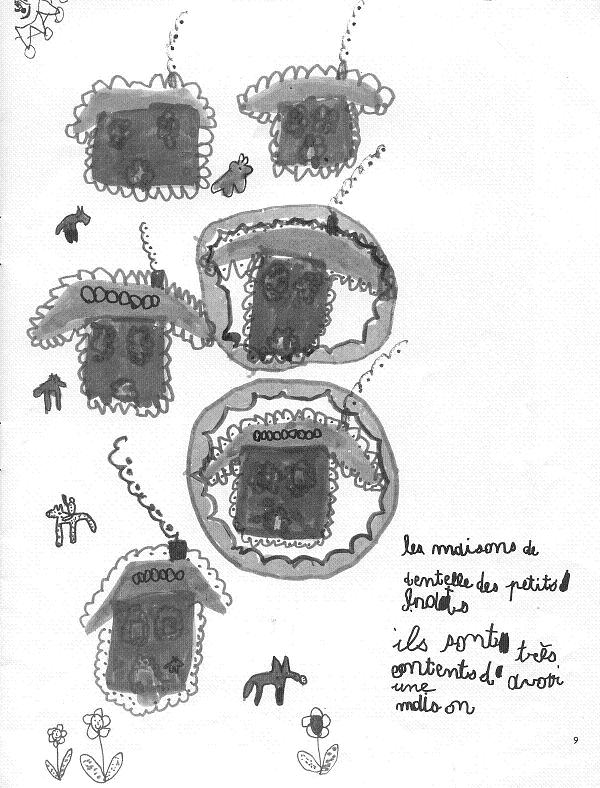 les maisons de
dentelle des petits
ils sont très
contents d'avoir
une
maison
9